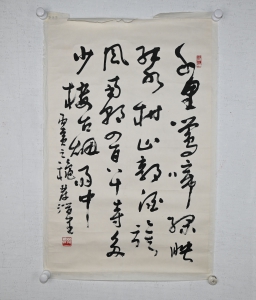 千里莺啼绿映
红水村山郭酒旗
风南朝四百八十寺多
少楼台烟雨中